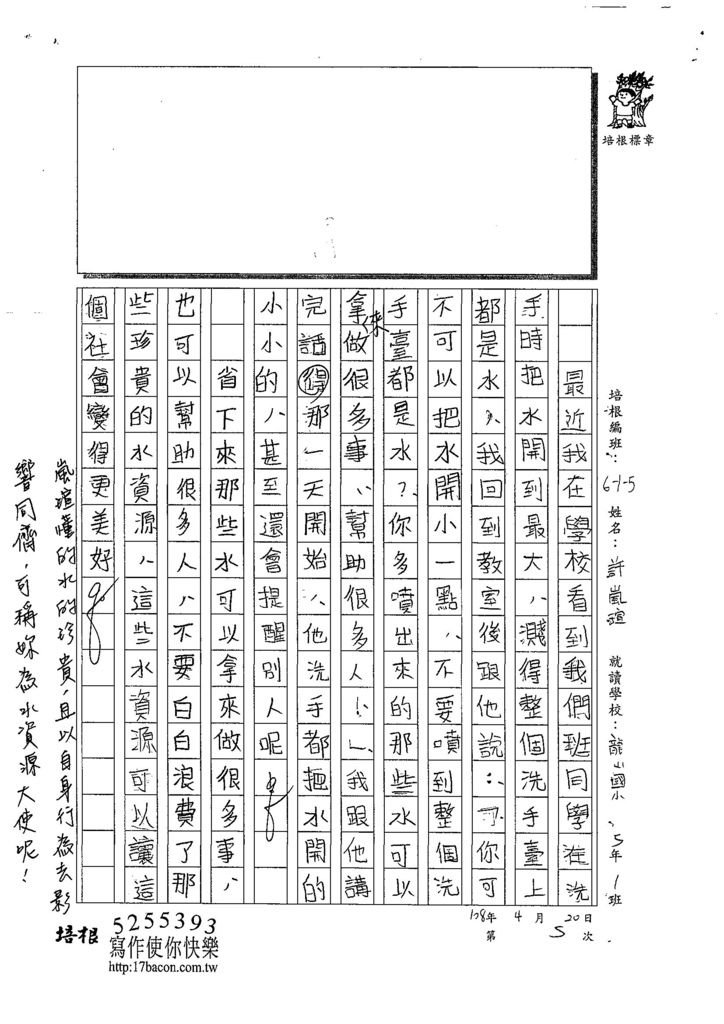 培根標章
培根編班：61-5 姓名：許嵐瑄 就讀學校：龍山國小 5年1班
108年4月20日
第5次
最近我在學校看到我們班同學在洗
手時把水開到最大，濺得整個洗手臺上
都是水，我回到教室後跟他說：「你可
不可以把水開小一點，不要噴到整個洗
手臺都是水？你多噴出來的那些水可以
拿來做很多事，幫助很多人！」我跟他講
完話得那一天開始，他洗手都把水開的
小小的，甚至還會提醒別人呢
省下來那些水可以拿來做很多事，
也可以幫助很多人，不要白白浪費了那
些珍貴的水資源，這些水資源可以讓這
個社會變得更美好
嵐瑄懂的水的珍貴，且以自身行為去影
響同儕，可稱妳為水資源大使呢！
培根 5255393
寫作使你快樂
http:17bacon.com.tw